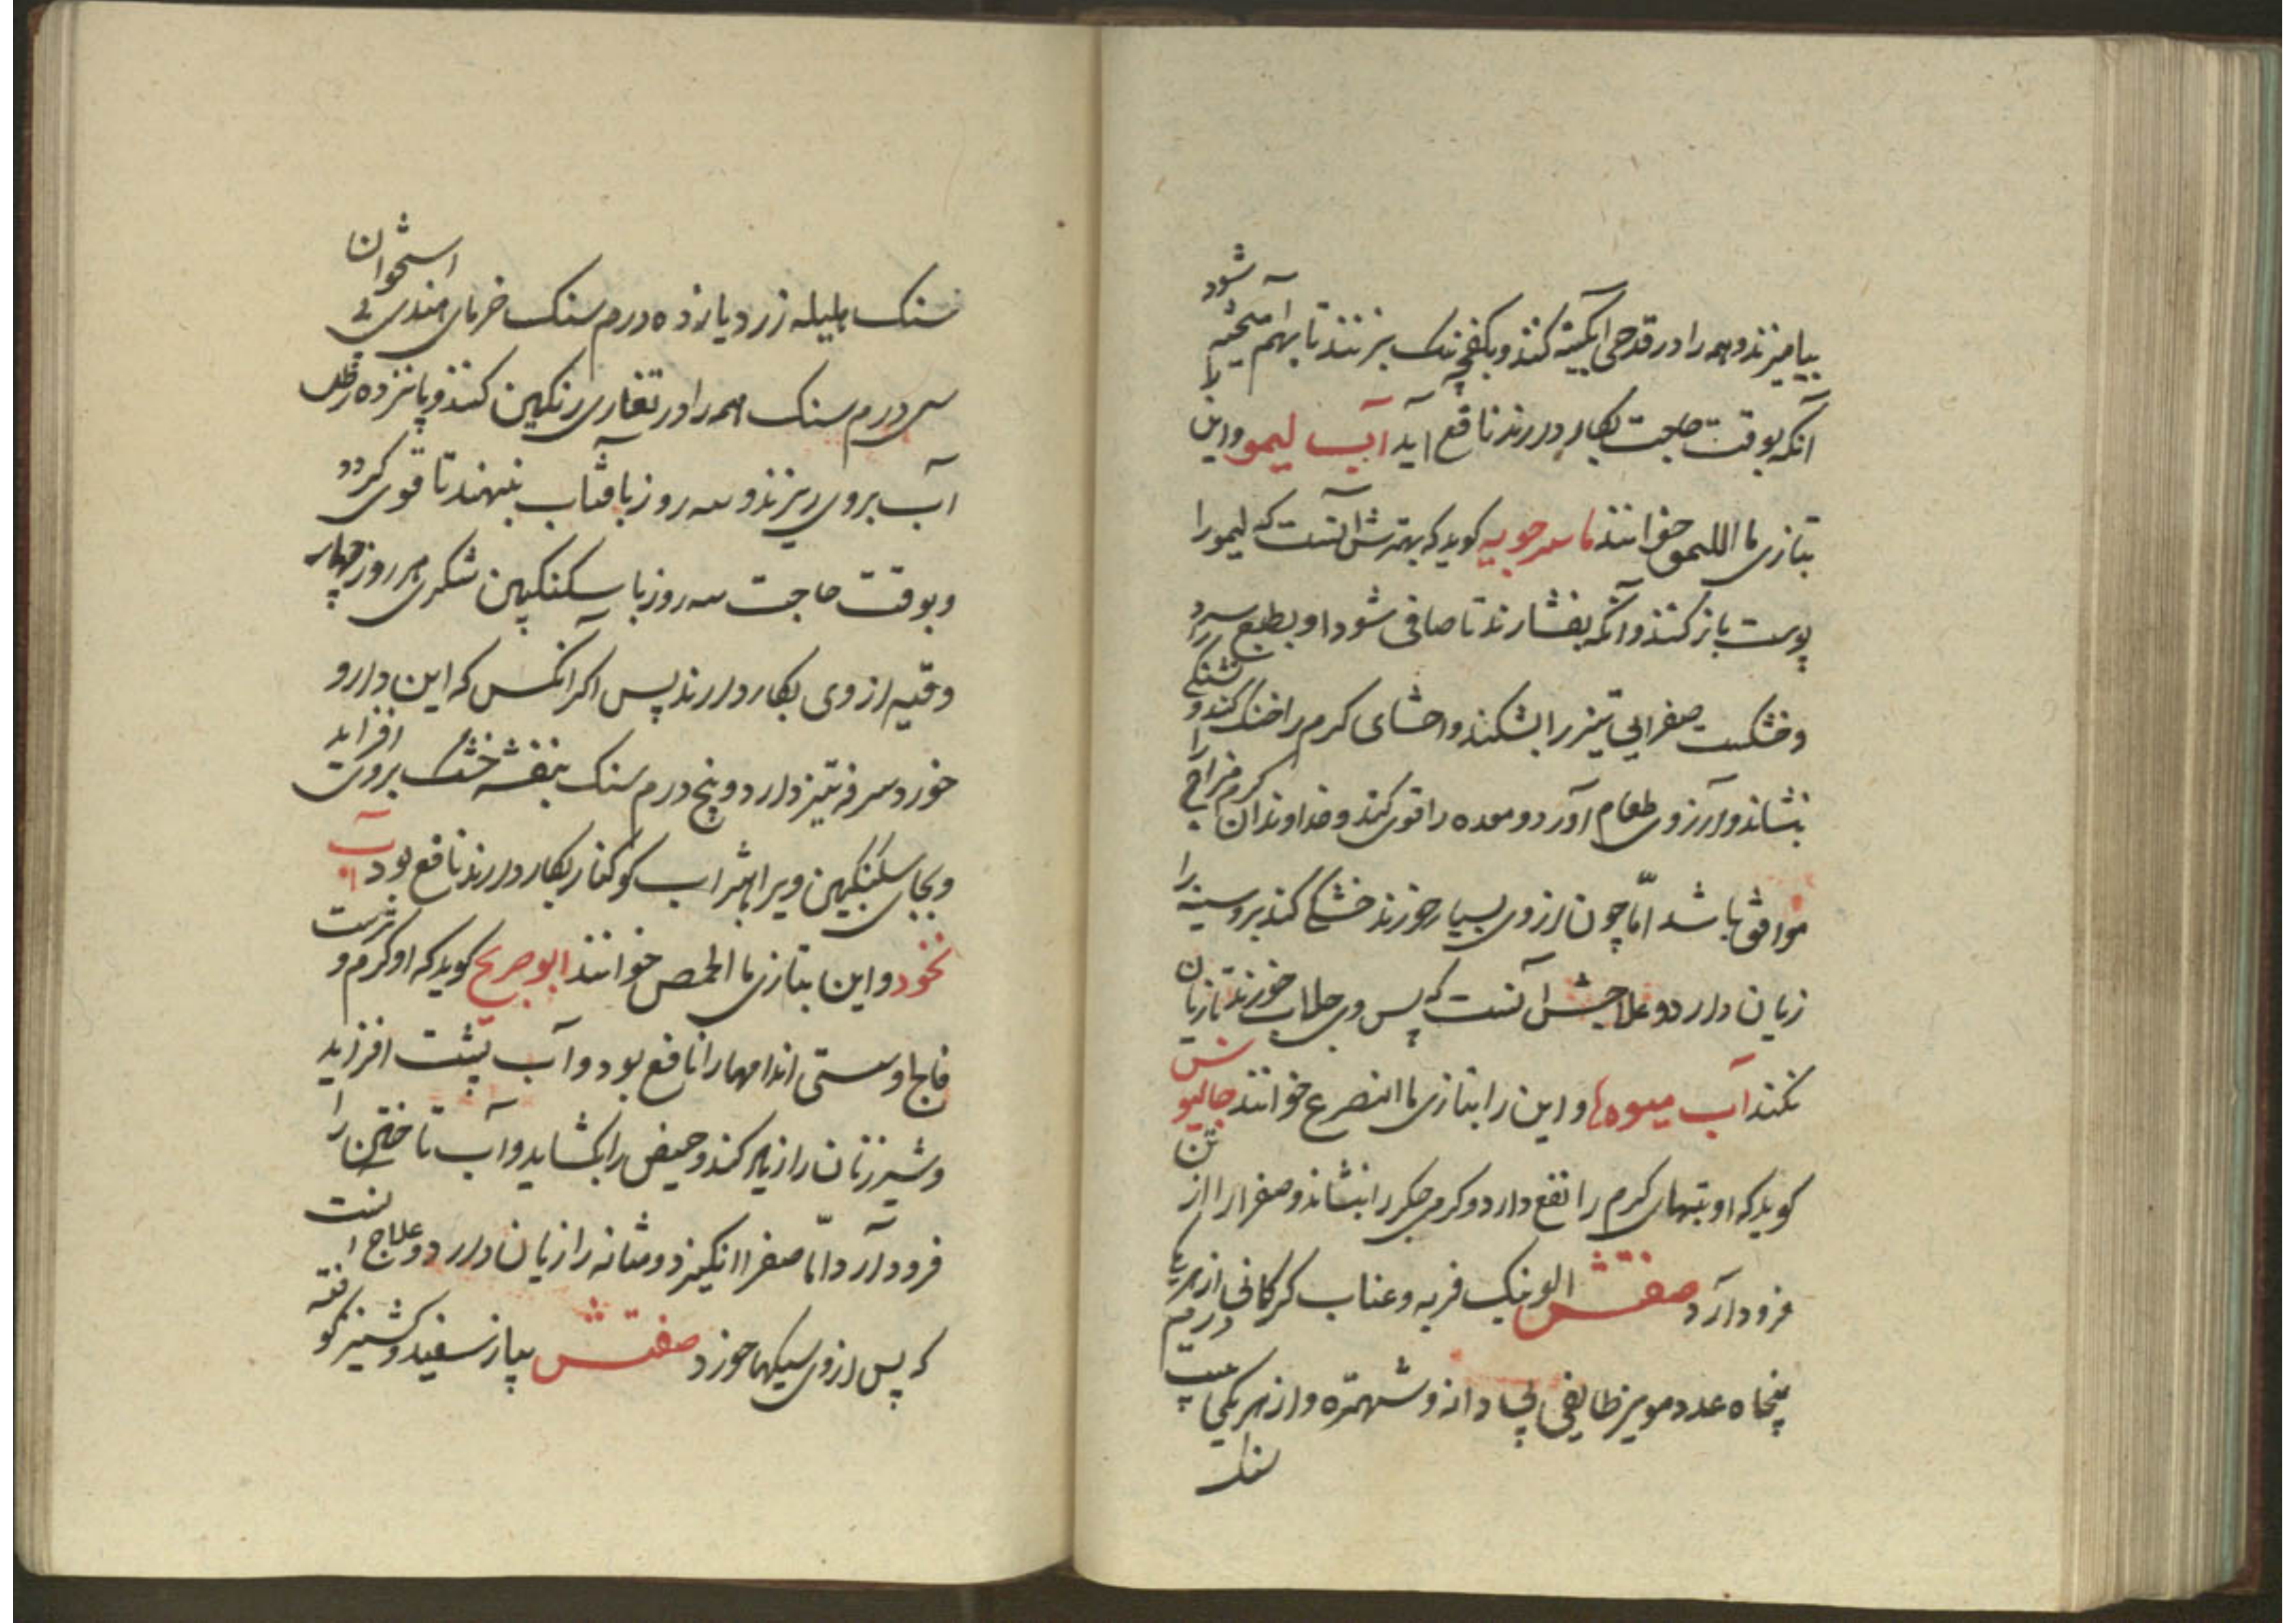 بیامیزند و همه را در قدحی ابکینه کنند و بکفچه نیک بزنند تا بهم آمیخته شود
یا آنکه بوقت حاجت بکار دارند نافع آید آب لیمو و این
بتازی ما اللیمو خوانند ماسرجویه کوید که بهترش آنست که لیمو را
پوست باز کنند و آنکه بفشارند تا صافی شود او بطبع سرد
و خشکست صفرایی تیز را بشکند و احشای کرم را خنک کند و تشنکی را
بنشاند و آرزوی طعام آورد و معده را قوی کند و خداوندان کرم مزاج
موافق باشد امّا چون از وی بسیار خورند خشکی کند بر و سینه را
زیان دارد و علاجش آنست که پس وی جلاب خورند تا زیان
نکند آب میوه‌ها و این را بتازی ما خوانند جالینوس
کوید که او تبهای کرم را نفع دارد و کرمی جکر را بنشاند و صفرا را از تن
فرود آرد صفتش الو نیک فربه و عناب کرکانی از هر یکی
پنجاه عدد مویز طایفی بی دانه و شهتره و از هر یکی بیست درم
سنک
سنک هلیله زرد یازده درم سنک خرمای هندی بی استخوان
سی درم سنک همه را در تغاری رنکین کنند و پانزده رطل
آب بروی ریزند و سه روز بافتاب بنهند تا قوی کردد
و بوقت حاجت سه روز با سکنکبین شکری هر روز چهار
وقیه از وی بکار دارند پس اکر آنکس که این دارو
خورد سرفه تیز دارد و پنج درم سنک بنفشه خشک بروی افزاید
و بجای سکنکبین ویرا بشراب کوکنار بکار دارند نافع بود آب
نخود و این بتازی ما الحمص خوانند ابو جریح کوید که او کرم و ترست
فالج و سستی اندامها را نافع بود و آب پشت افزاید
و شیر زنان را زیاد کند و حیض را بکشاید و آب تاختن را
فرود آرد امّا صفرا انکیزد و مثانه را زیان دارد و علاج انست
که پس از وی سیکبا خورد صفتش پیاز سفید و کشنیز کوفته